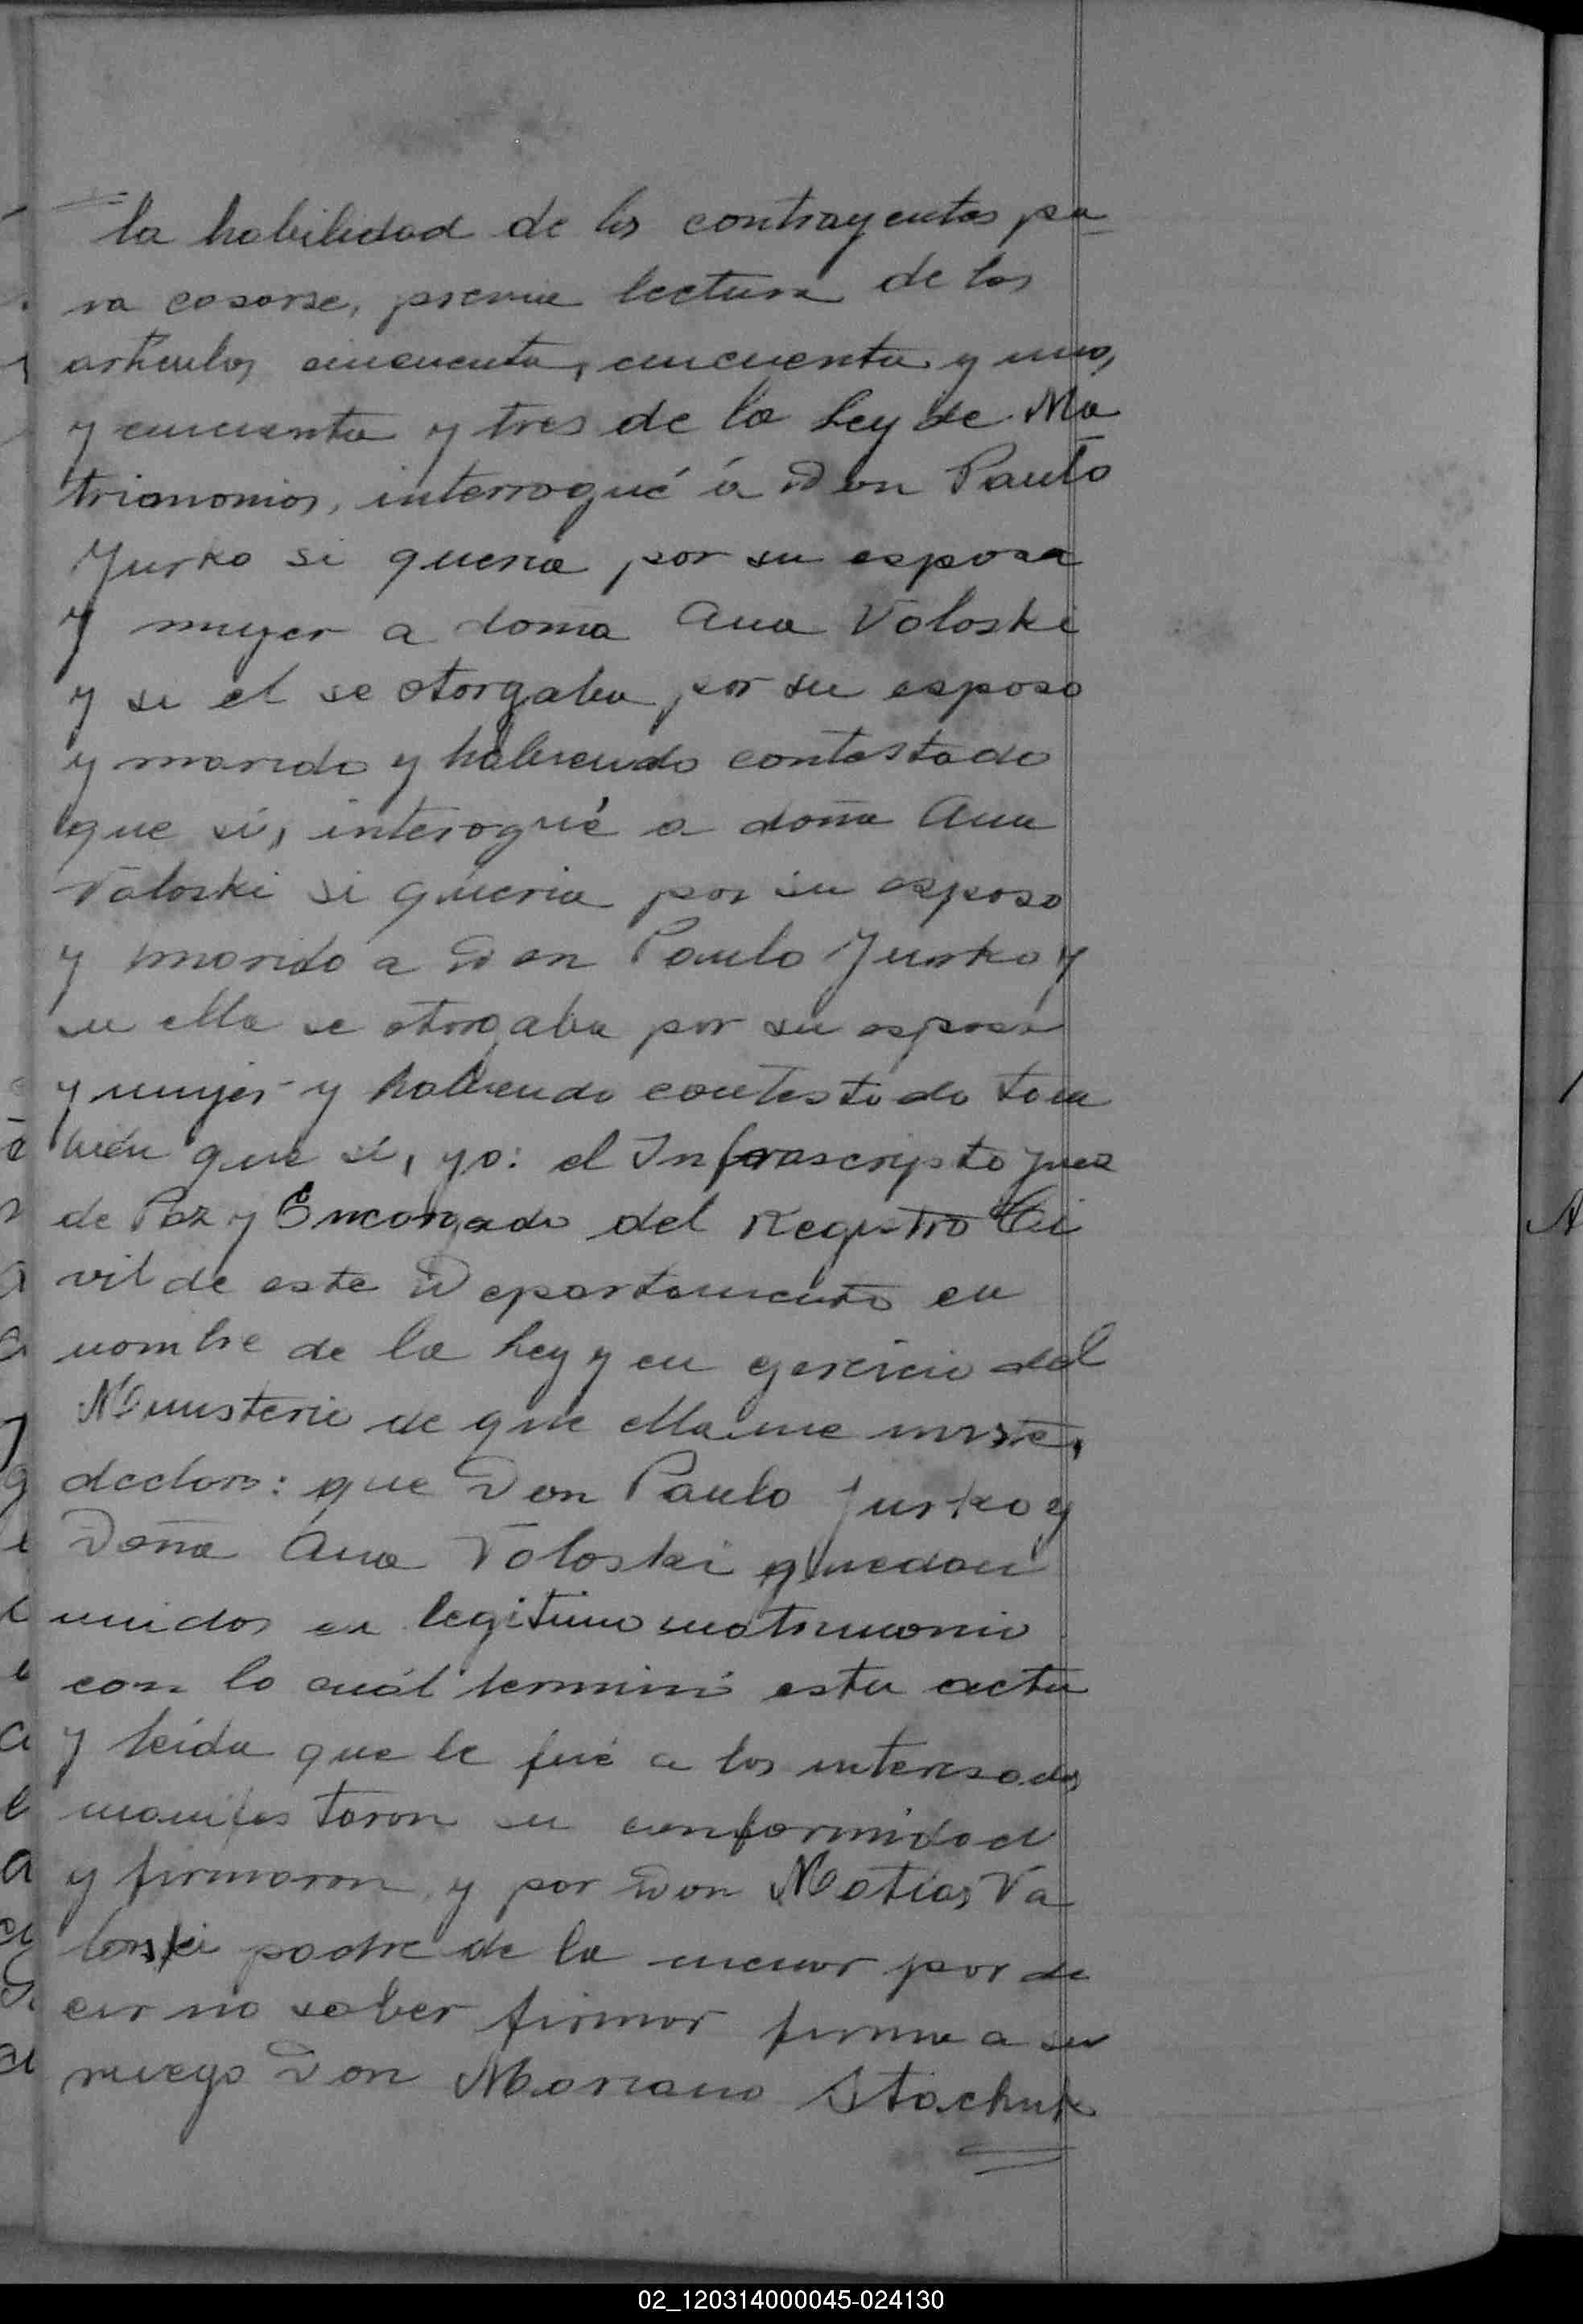 la habilidad de los contrayentes pa
ra casarse, previa lectura de los
artículos cincuenta, cincuenta y uno,
y cincuenta y tres de la Ley de Ma
trimonios, interrogué á Don Paulo
Jurko si queria por su esposa
y mujer a doña Ana Voloski
y si el se otorgaba por su esposo
y marido y habiendo contestado
que si, interogué a doña Ana
Valoski si queria por su esposo
y marido a Don Paulo Jurko y
si ella se otorgaba por su esposa
y mujer y habiendo contestado tam
bién que si, yo: el Infrascripto Juez
de Paz y Encargado del Registro Ci
vil de este Departamento en
nombre de la Ley y en ejercicio del
Ministerio de que ella me inviste,
declaro: que Don Paulo Jurko y
Doña Ana Voloski quedan
unidos en legitimo matrimonio
con lo cuál terminó esta acta
y leída que le fué a los interesados
manifestaron su conformidad
y firmaron y por Don Matías Va
loski padre de la menor por de
cir no saber firmar firma a su
ruego Don Mariano Stachuk
02_120314000045-024130